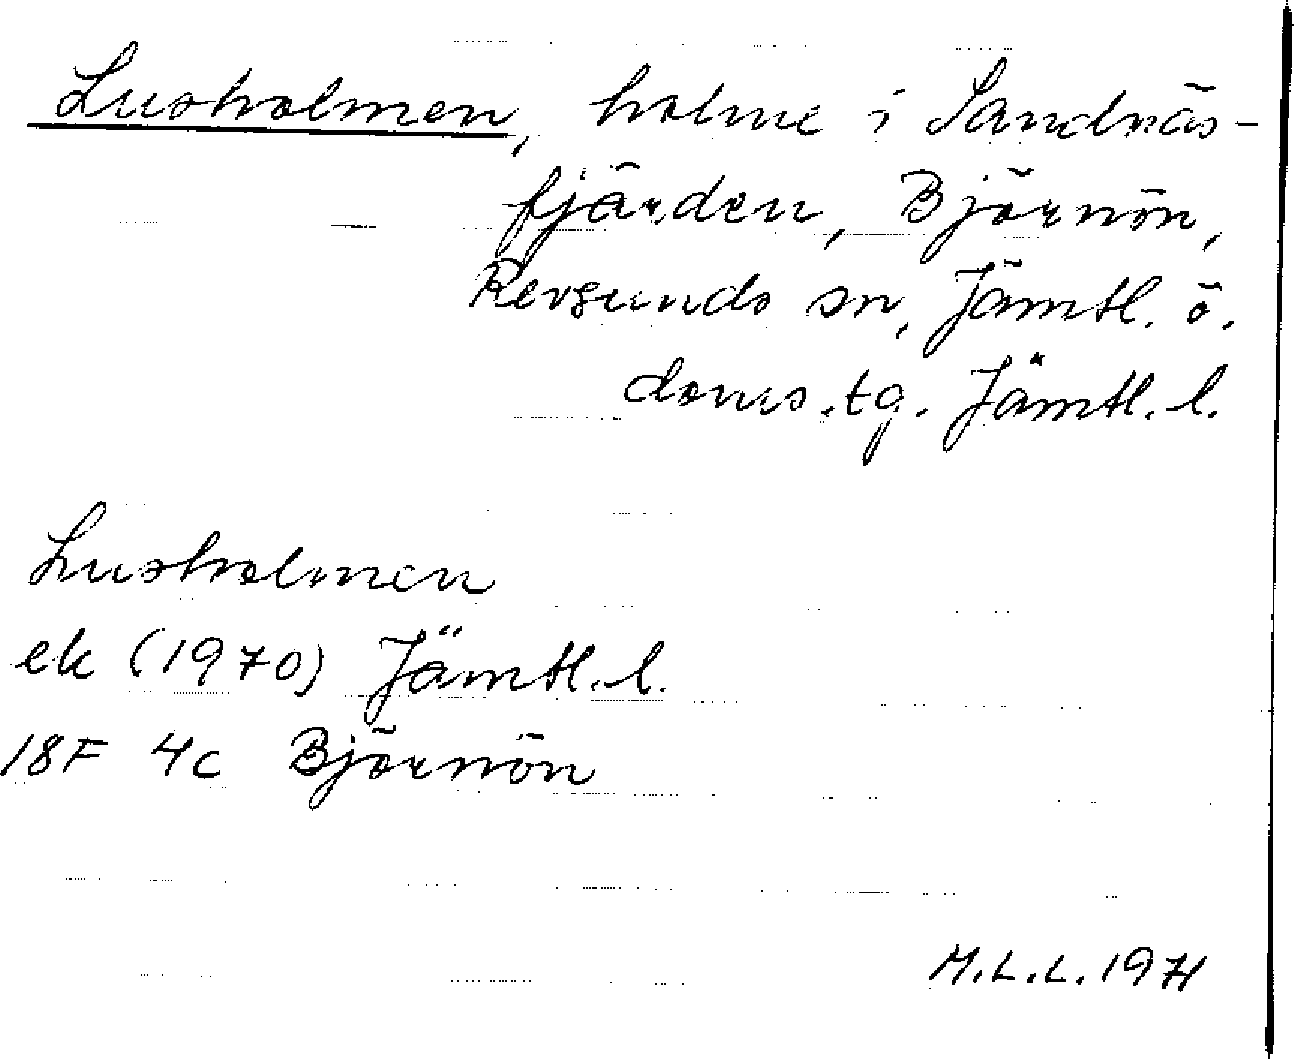 Lusholmen, holme i Sandnäs-
fjärden, Björnön,
Revsunds sn, Jämtl. ö.
doms.tg. Jämtl. l.
Lusholmen
ek (1970) Jämtl. l.
18F 4c Björnön
M.L.L. 1971